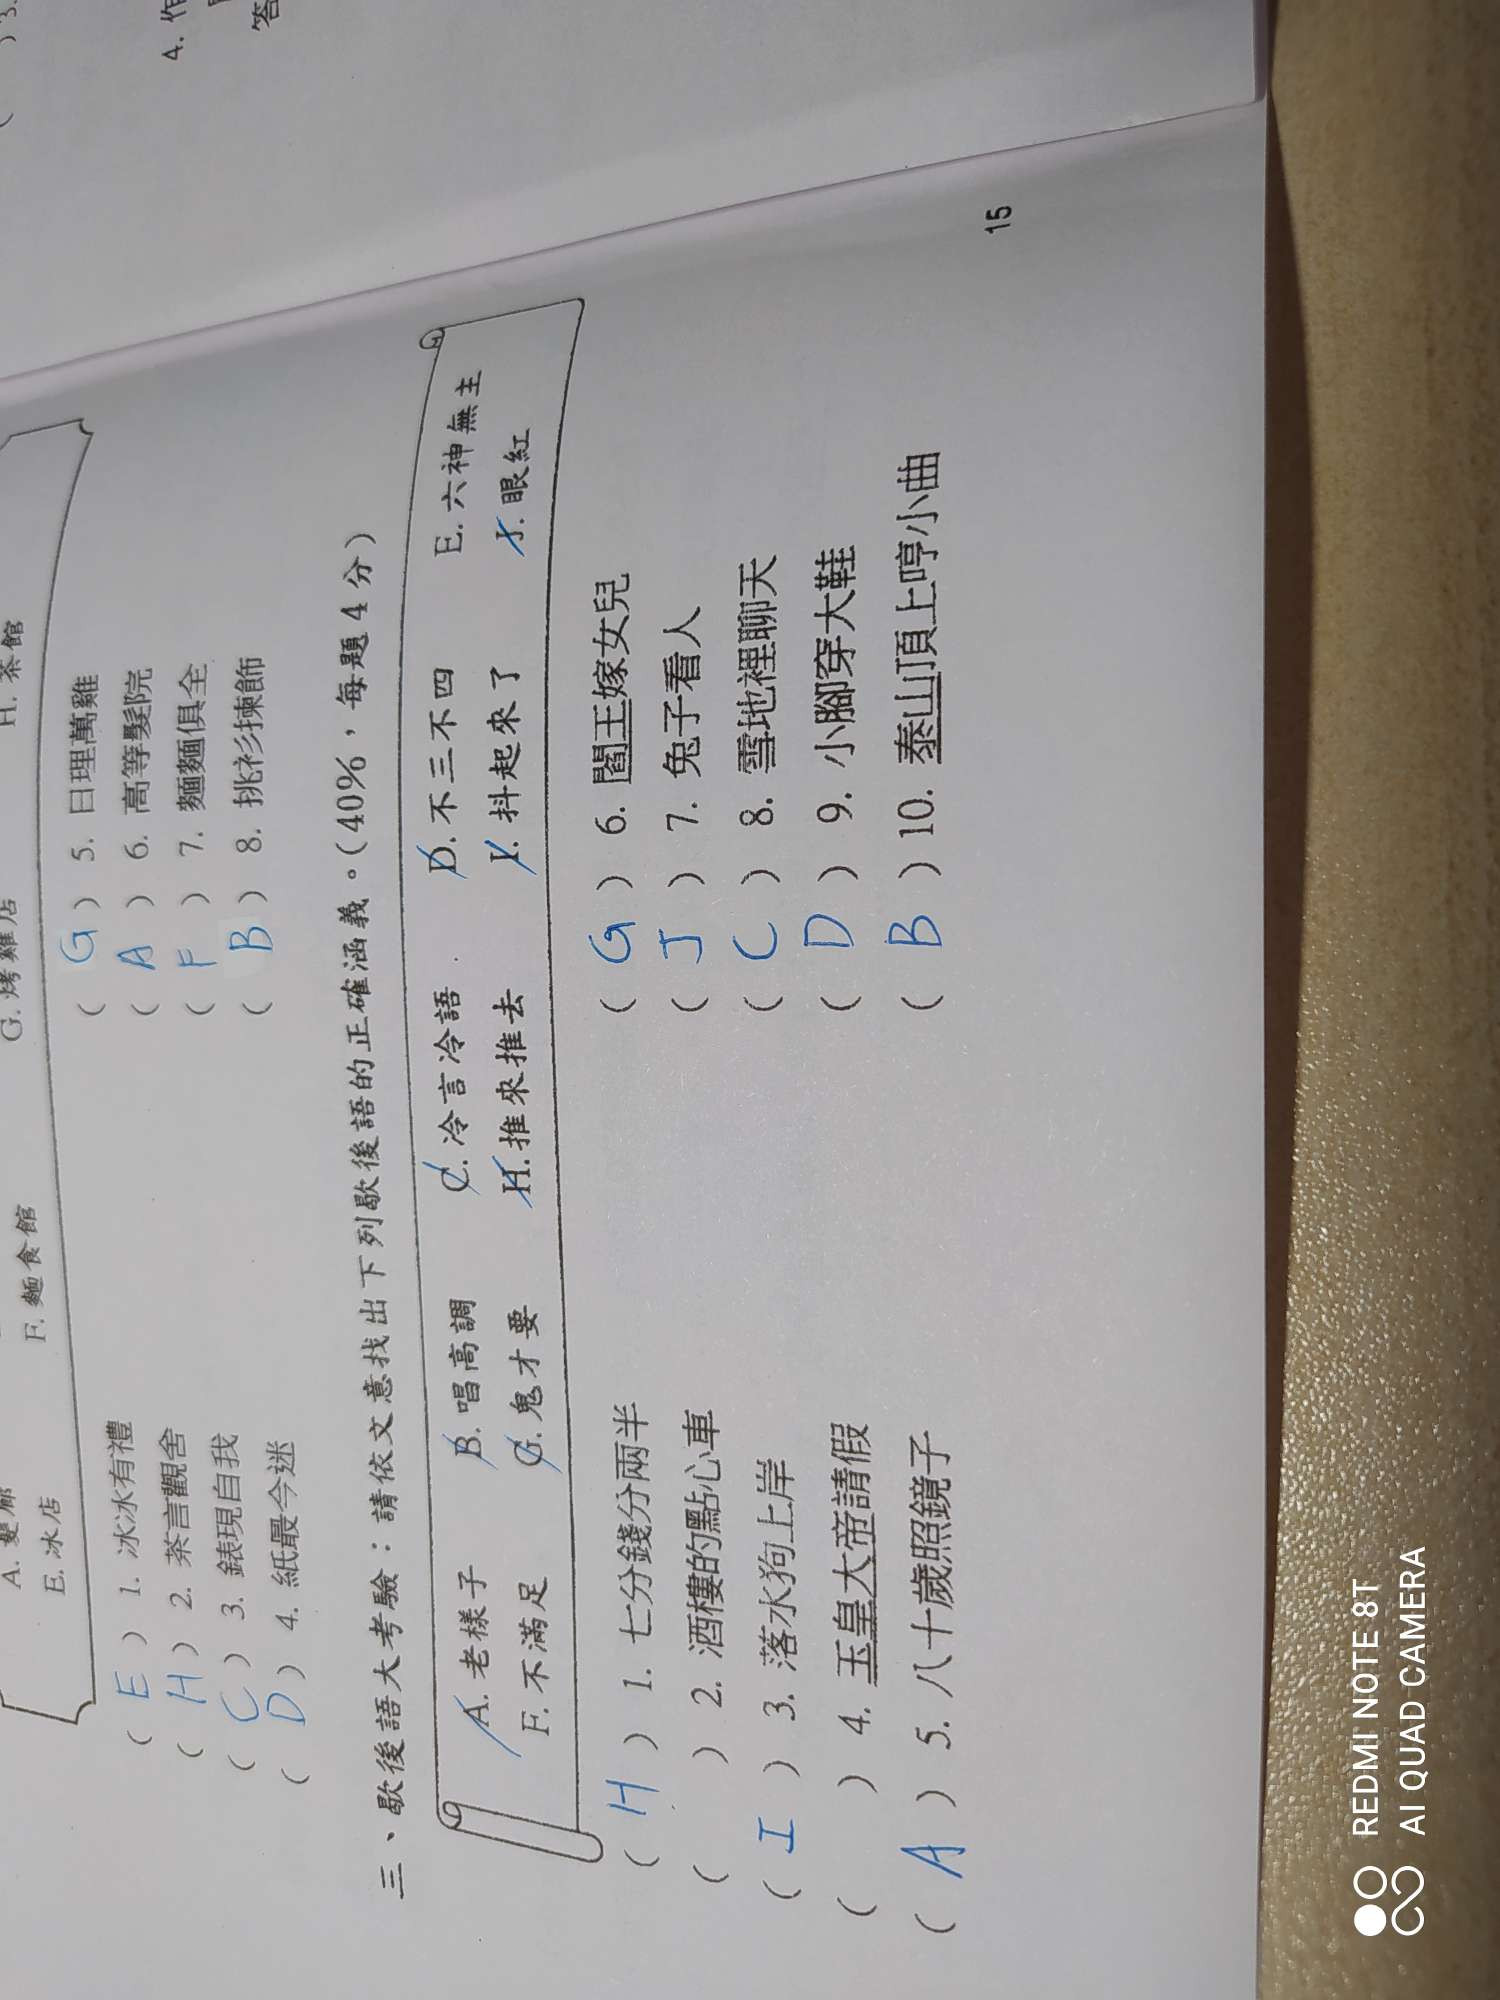 4. 作
答
A. 髮廊
E. 冰店 F. 麵食館 G. 烤雞店 H. 茶館
( E ) 1. 冰冰有禮 ( G ) 5. 日理萬雞
( H ) 2. 茶言觀舍 ( A ) 6. 高等髮院
( C ) 3. 錶現自我 ( F ) 7. 麵麵俱全
( D ) 4. 紙最今迷 ( B ) 8. 挑衫揀飾
三、歇後語大考驗：請依文意找出下列歇後語的正確涵義。(40%，每題4分)
A. 老樣子 B. 唱高調 C. 冷言冷語 D. 不三不四 E. 六神無主
F. 不滿足 G. 鬼才要 H. 推來推去 I. 抖起來了 J. 眼紅
( H ) 1. 七分錢分兩半 ( G ) 6. 閻王嫁女兒
( ) 2. 酒樓的點心車 ( J ) 7. 兔子看人
( I ) 3. 落水狗上岸 ( C ) 8. 雪地裡聊天
( ) 4. 玉皇大帝請假 ( D ) 9. 小腳穿大鞋
( A ) 5. 八十歲照鏡子 ( B ) 10. 泰山頂上哼小曲
15
REDMI NOTE 8T
AI QUAD CAMERA